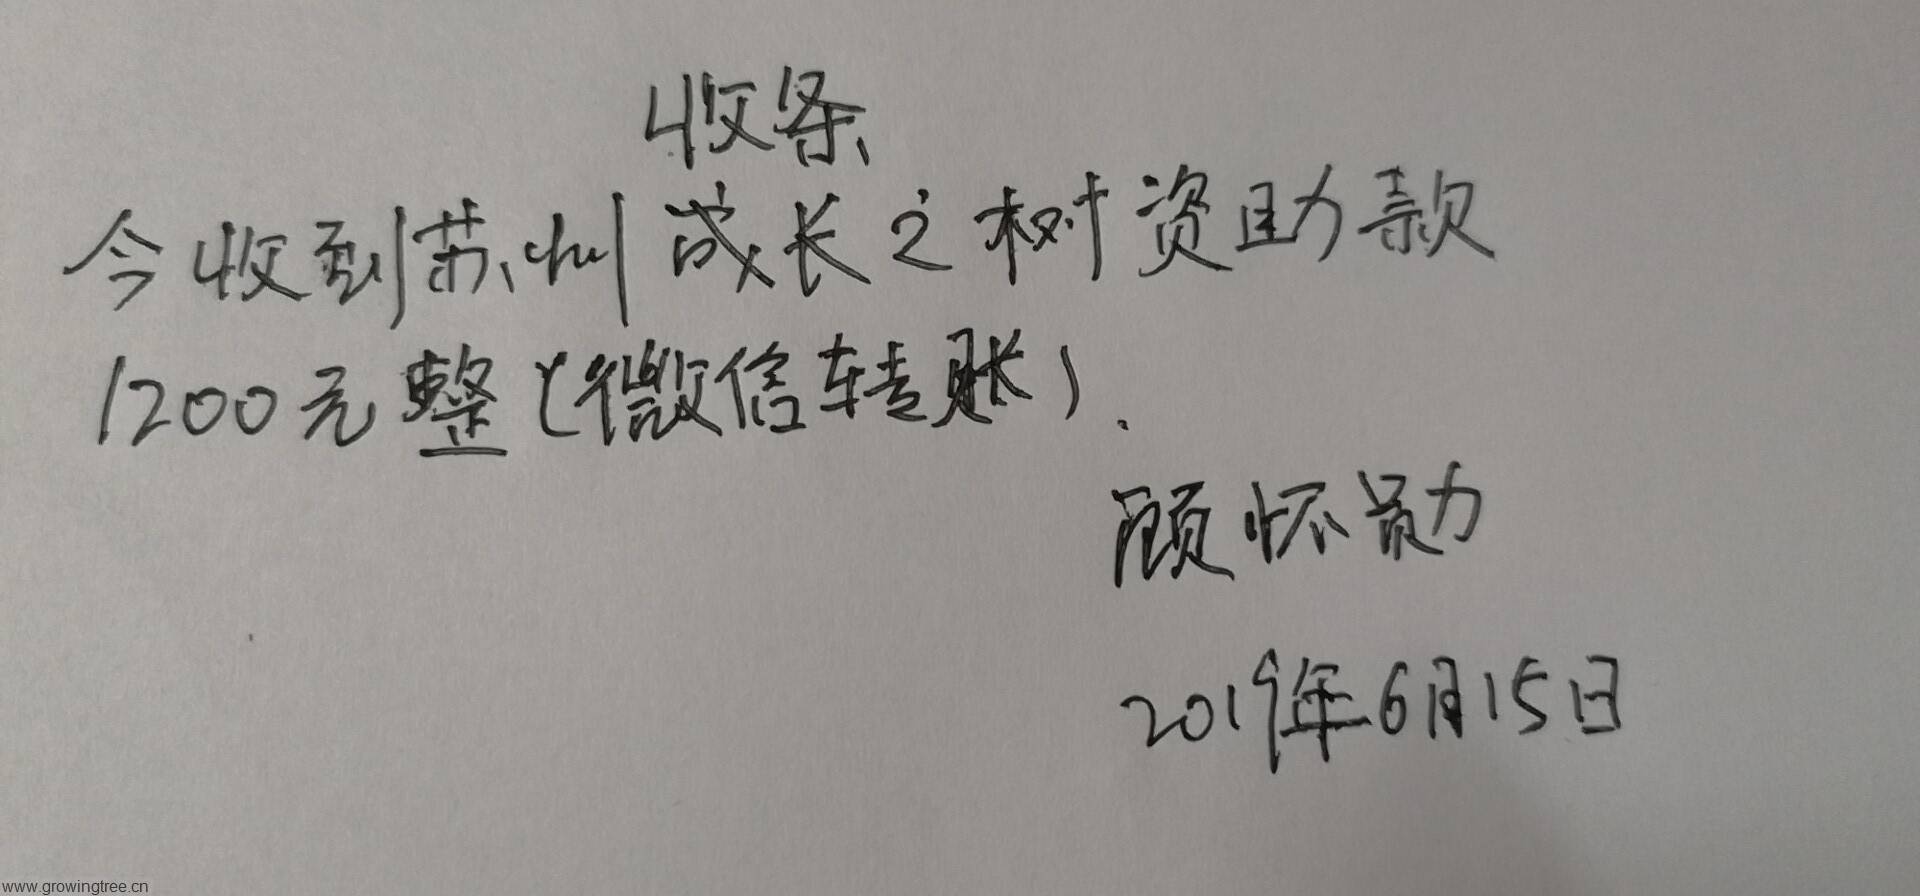 收条
今收到苏州成长之树资助款
1200元整(微信转账).
顾怀勋
2019年6月15日
www.growingtree.cn